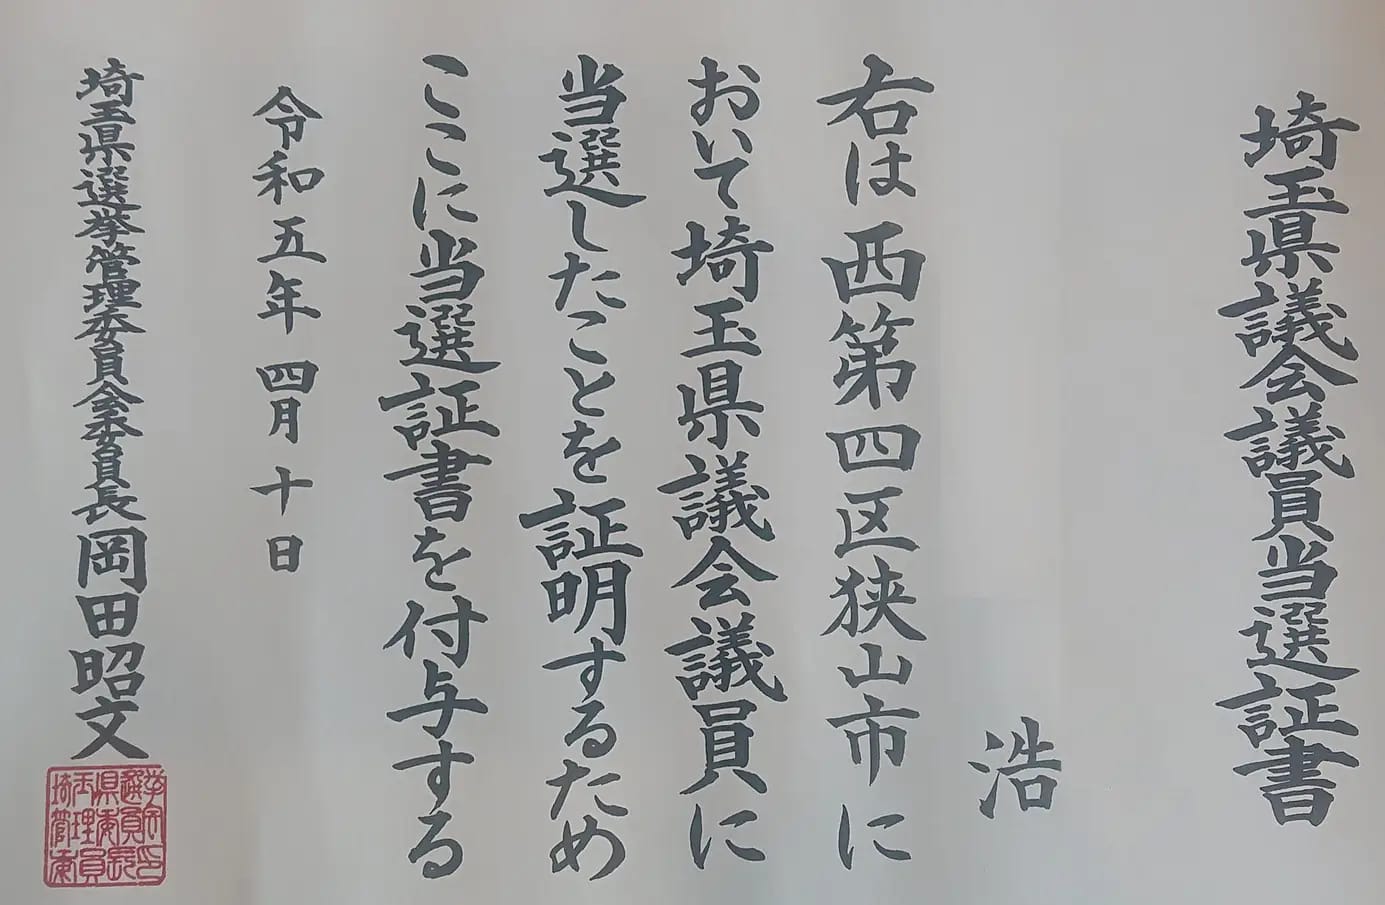 埼玉県議会議員当選証書
浩
右は西第四区狭山市に
おいて埼玉県議会議員に
当選したことを証明するため
ここに当選証書を付与する
令和五年四月十日
埼玉県選挙管理委員会委員長岡田昭文